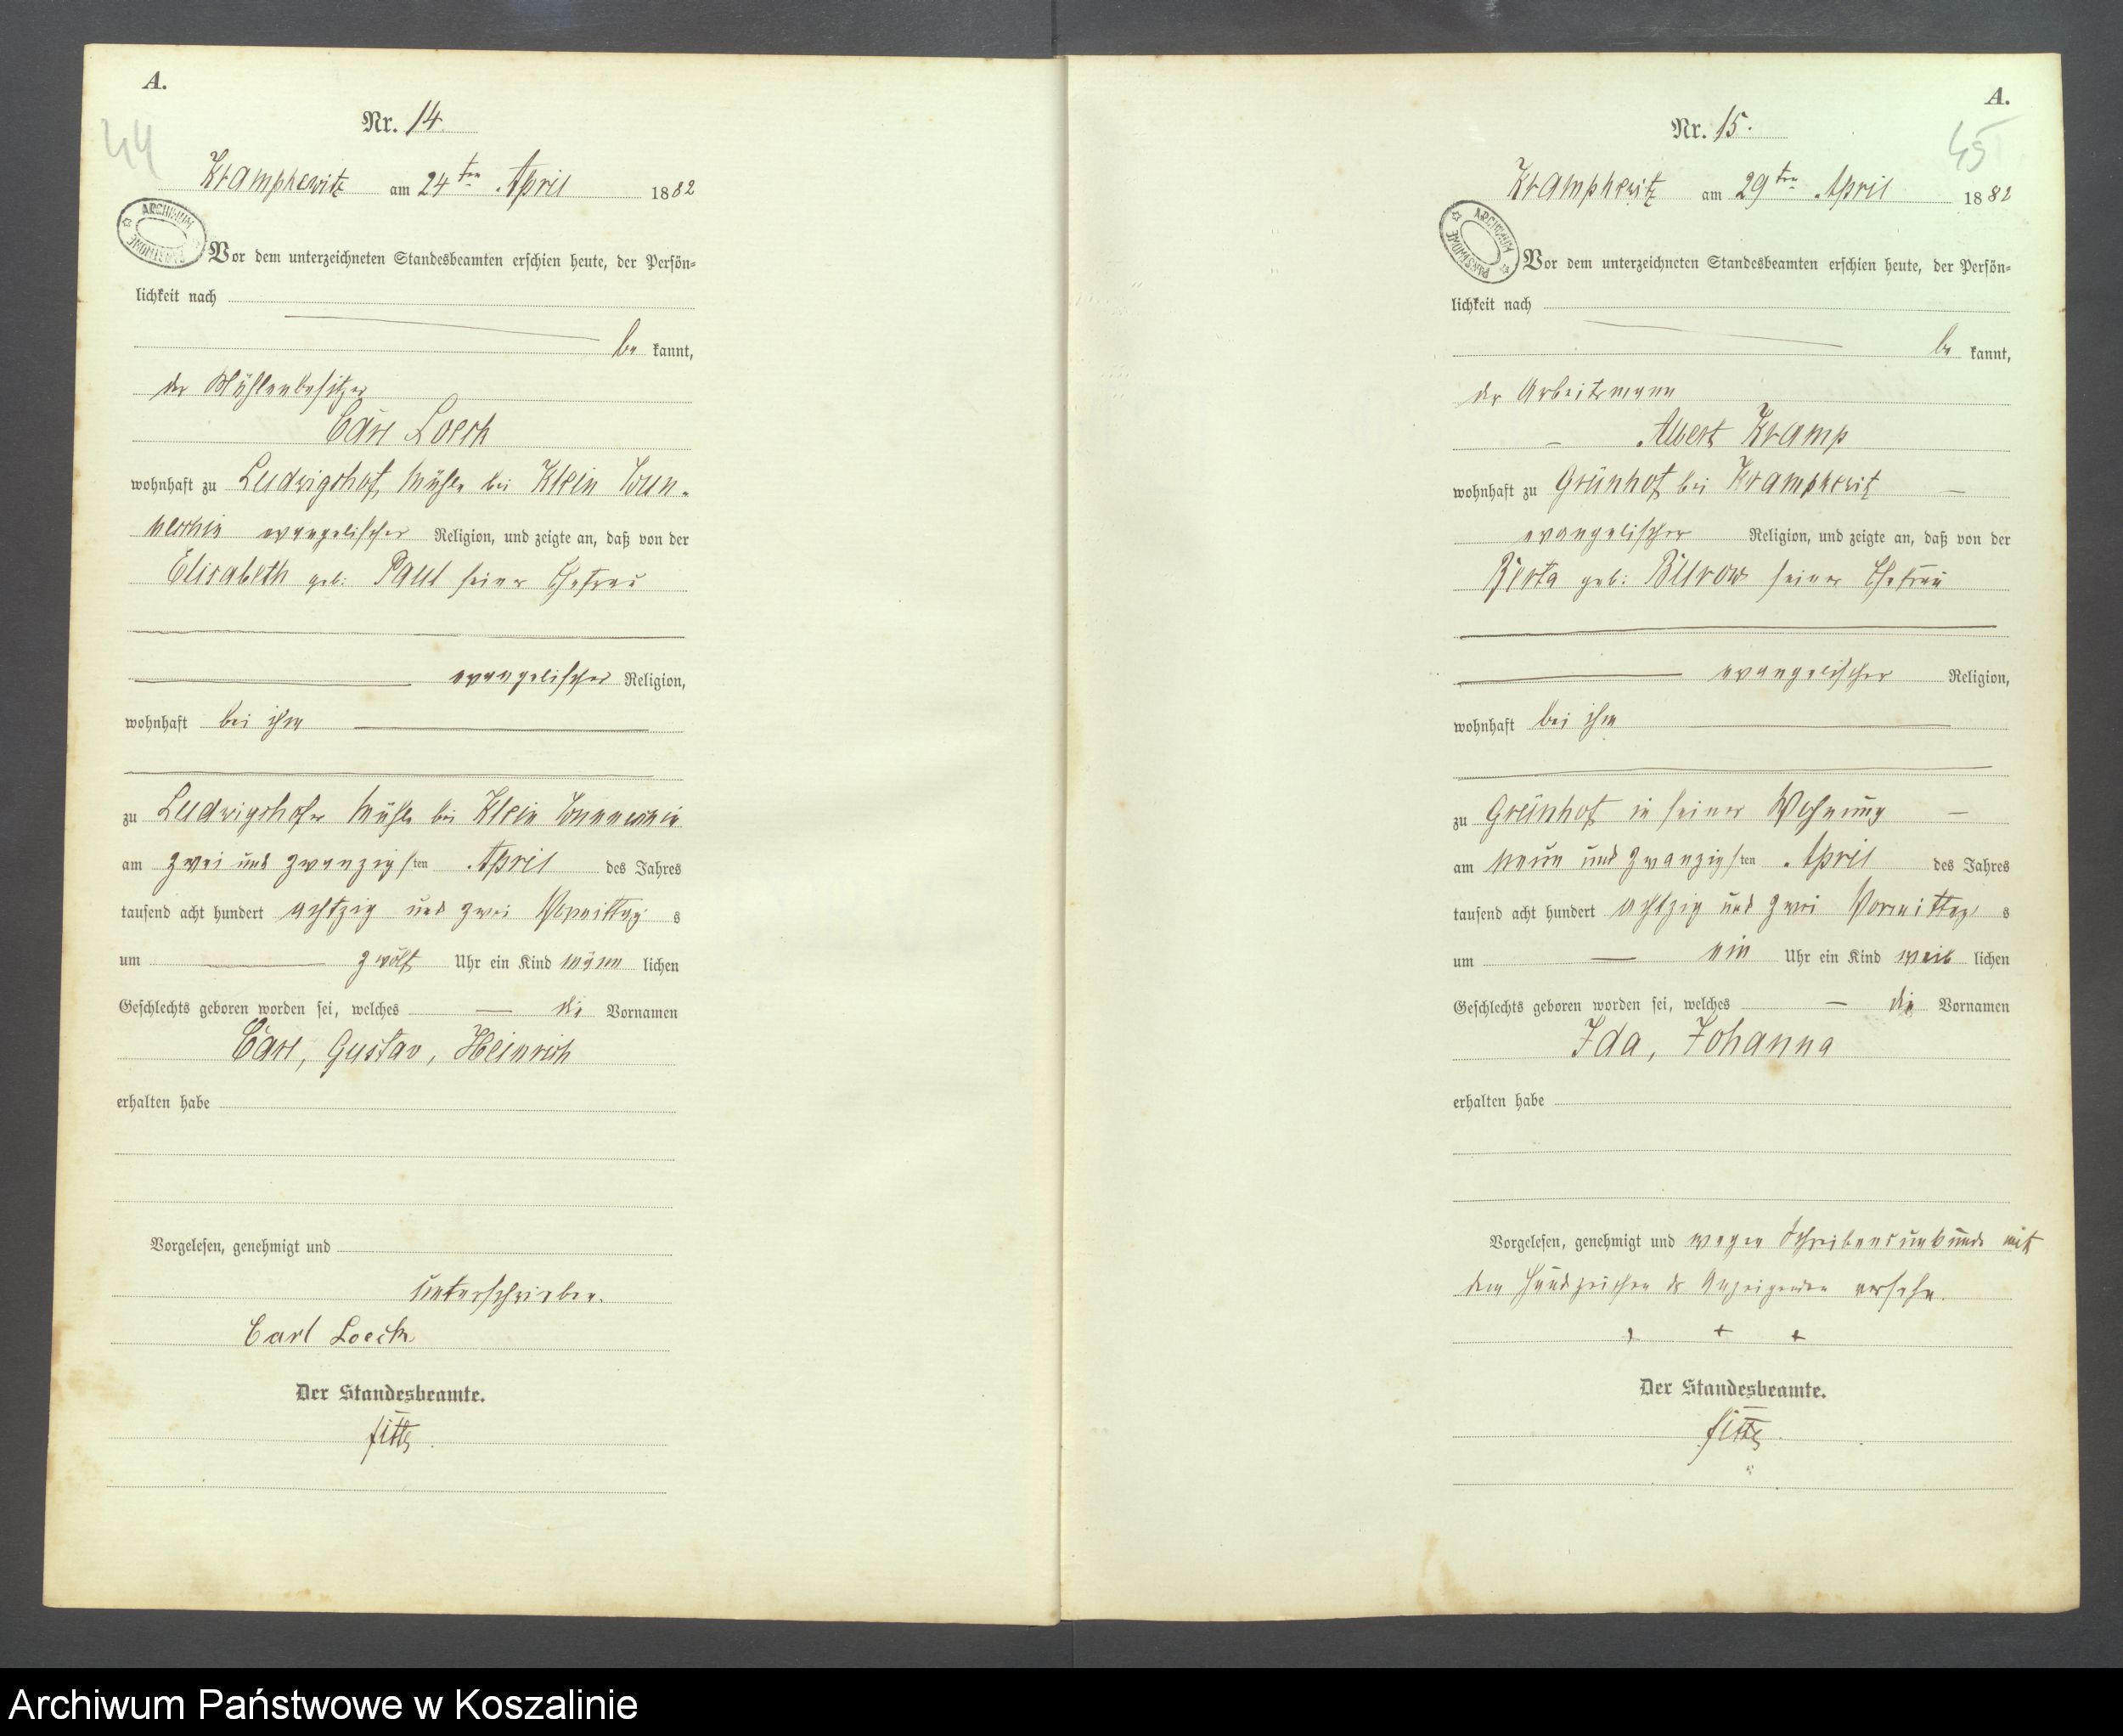 A.
44
Nr. 14.
Krampkewitz am 24ten April 1882
ARCHIWUM PAŃSTWOWE
Vor dem unterzeichneten Standesbeamten erschien heute, der Persön=
lichkeit nach
be kannt,
der Mühlenbesitzer
Carl Loeck
wohnhaft zu Ludwigshof Mühle bei Klein Wun-
neschin evangelischer Religion, und zeigte an, daß von der
Elisabeth geb: Paul seiner Ehefrau
evangelischer Religion,
wohnhaft bei ihm
zu Ludwigshofer Mühle bei Klein Wunneschin
am zwei und zwanzigsten April des Jahres
tausend acht hundert achtzig und zwei Vormittags
um zwölf Uhr ein Kind männ lichen
Geschlechts geboren worden sei, welches die Vornamen
Carl, Gustav, Heinrich
erhalten habe
Vorgelesen, genehmigt und
unterschrieben.
Carl Loeck
Der Standesbeamte.
A.
45
Nr. 15.
Krampkewitz am 29ten April 1882
ARCHIWUM PAŃSTWOWE
Vor dem unterzeichneten Standesbeamten erschien heute, der Persön=
lichkeit nach
be kannt,
der Arbeitsmann
Albert Kramp
wohnhaft zu Grünhof bei Krampkewitz
evangelischer Religion, und zeigte an, daß von der
Berta geb: Burow seiner Ehefrau
evangelischer Religion,
wohnhaft bei ihm
zu Grünhof in seiner Wohnung
am neun und zwanzigsten April des Jahres
tausend acht hundert achtzig und zwei Vormittags
um ein Uhr ein Kind weib lichen
Geschlechts geboren worden sei, welches die Vornamen
Ida, Johanna
erhalten habe
Vorgelesen, genehmigt und wegen Schreibensunkunde mit
dem Handzeichen des Anzeigenden versehn.
+ + +
Der Standesbeamte.
Archiwum Państwowe w Koszalinie